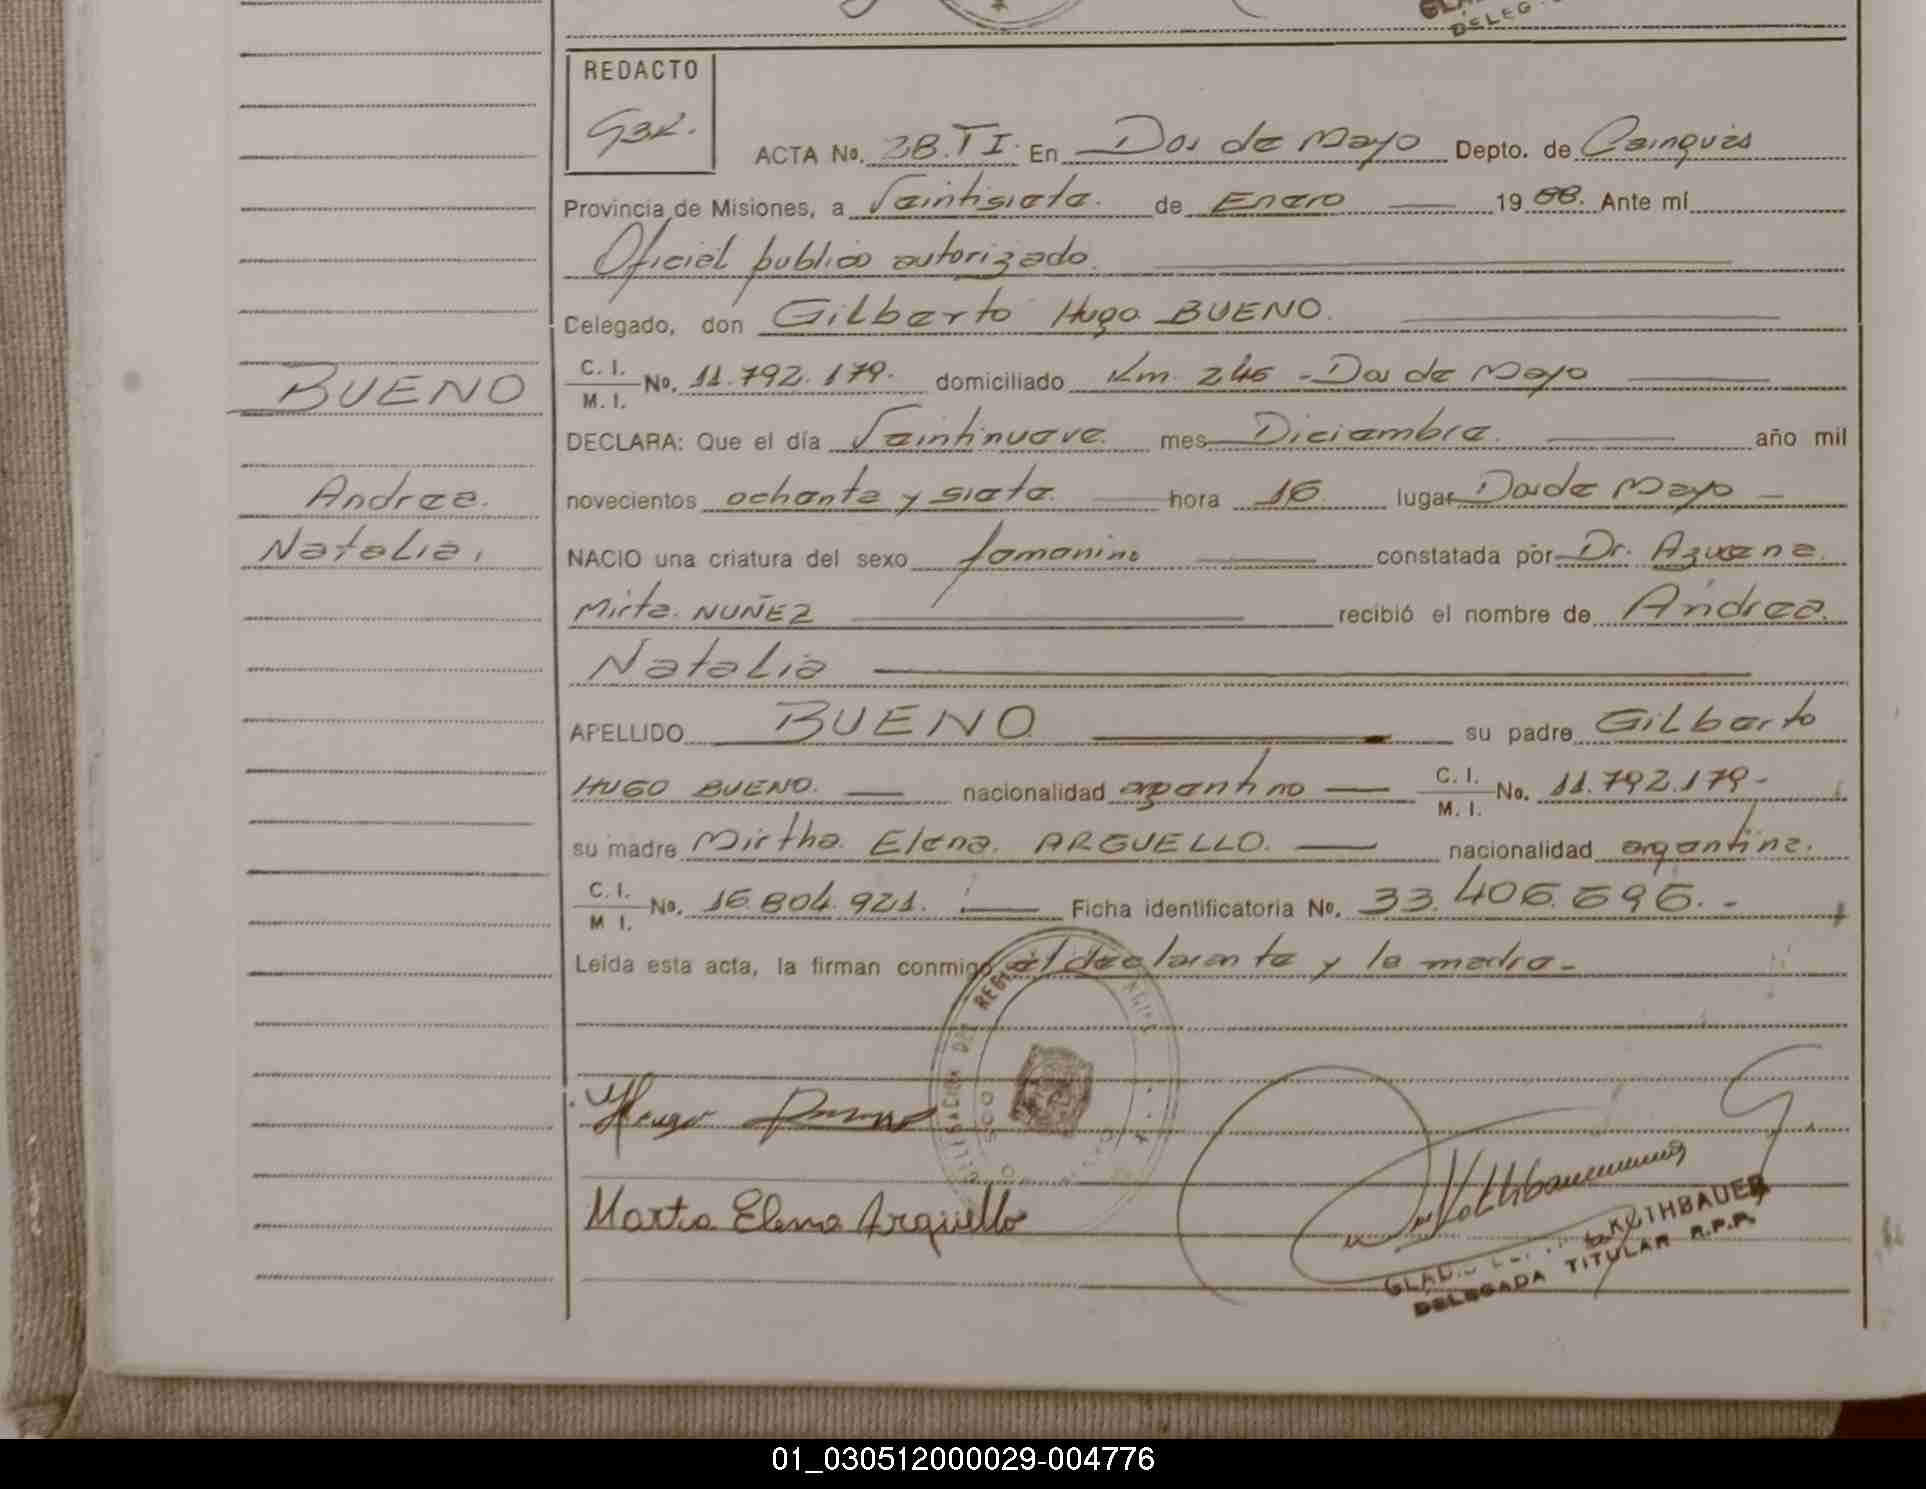 DELEG
REDACTO
G3K.
ACTA No. 28.TI. En Dos de Mayo Depto. de Cainguás
Provincia de Misiones, a Veintisiete. de Enero 19 88. Ante mí
Oficial publico autorizado.
Delegado, don Gilberto Hugo BUENO.
C. I.
M. I. No. 11.792.179. domiciliado Km. 246 - Dos de Mayo
BUENO
DECLARA: Que el día Veintinueve. mes Diciembre. año mil
Andrea. novecientos ochenta y siete. hora 16. lugar Dos de Mayo
Natalia. NACIO una criatura del sexo femenino constatada pór Dr. Azucena
Mirta. NUÑEZ recibió el nombre de Andrea.
Natalia
APELLIDO BUENO su padre Gilberto
HUGO BUENO. nacionalidad argentino C. I. M. I. No. 11.792.179-
su madre Mirtha. Elena. ARGUELLO. nacionalidad argentina.
C. I. M I. No. 16.804.921. Ficha identificatoria No. 33.406.696.-
Leida esta acta, la firman conmigo el declarante y la madre-
Hugo
Marta Elena Arguello
KOTHBAUER
DELEGADA TITULAR R.P.P.
01_030512000029-004776